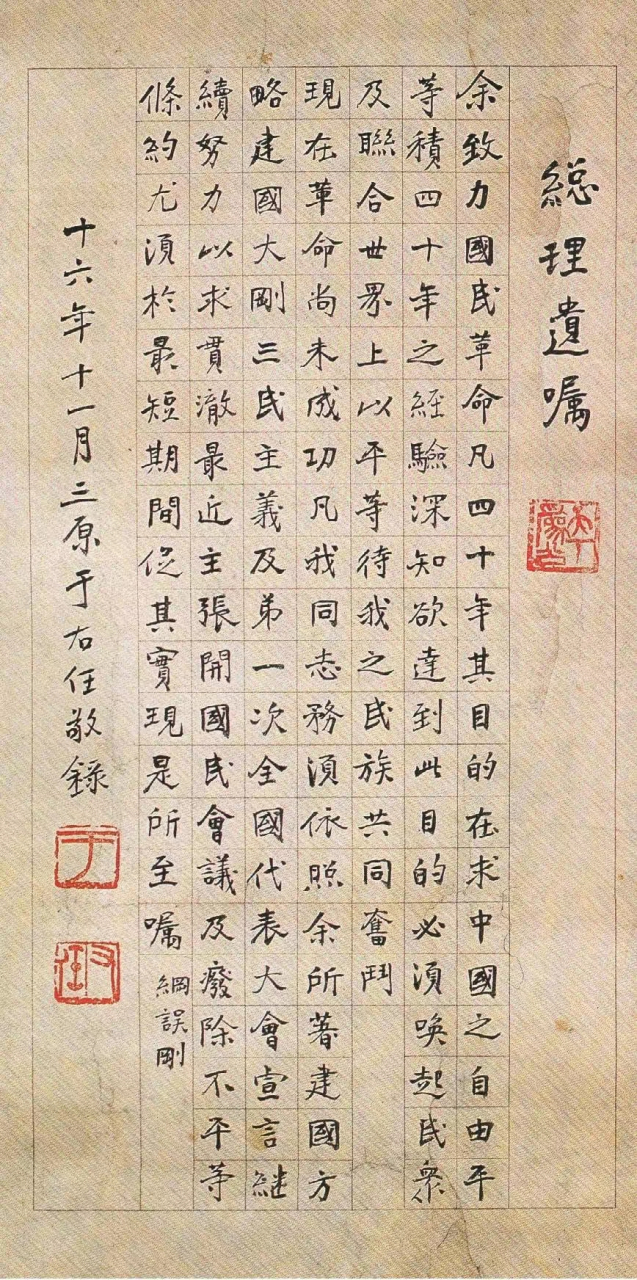 総理遺嘱
天下爲公
余致力國民革命凡四十年其目的在求中國之自由平
等積四十年之経驗深知欲達到此目的必須喚起民衆
及聯合世界上以平等待我之民族共同奮鬥
現在革命尚未成功凡我同志務須依照余所著建國方
略建國大剛三民主義及弟一次全國代表大會宣言継
續努力以求貫澈最近主張開國民會議及廢除不平等
條約尤須於最短期間促其實現是所至嘱 綱誤剛
十六年十一月三原于右任敬錄
于
右任